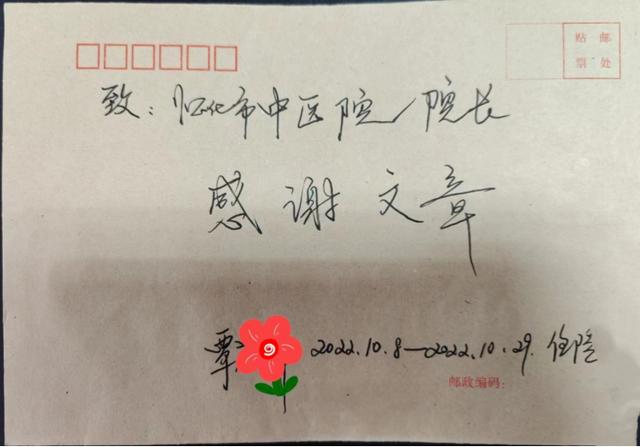 贴 邮
票 处
致：怀化市中医院 院长
感谢文章
覃 2022.10.8—2022.10.29. 住院
邮政编码：